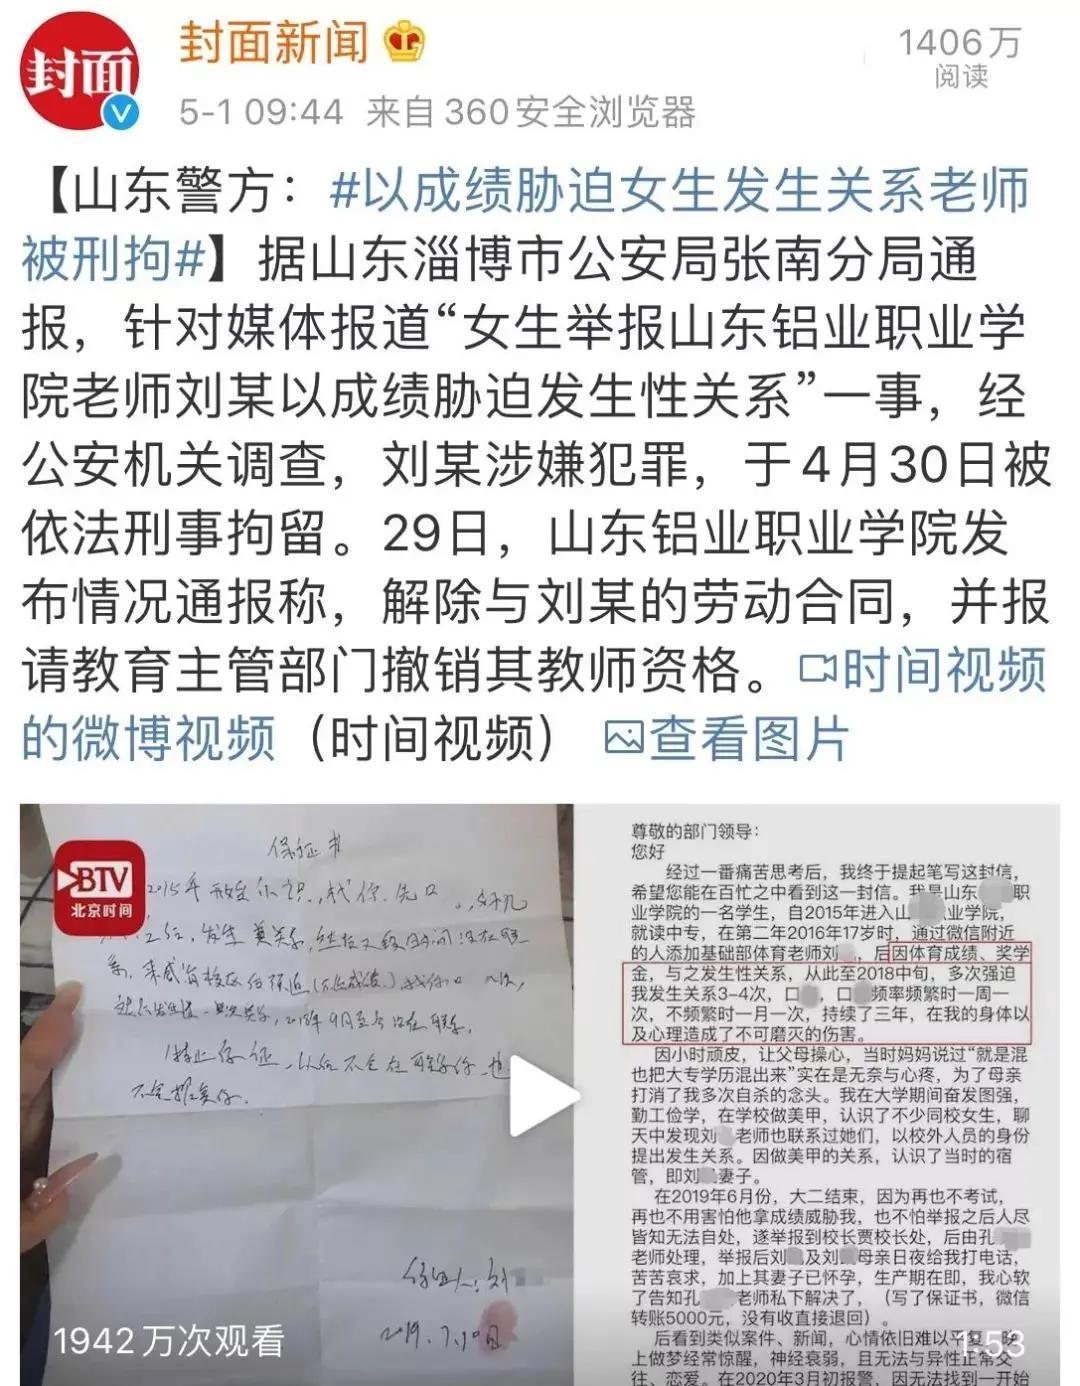 封面
封面新闻
1406万
阅读
5-1 09:44 来自360安全浏览器
【山东警方：#以成绩胁迫女生发生关系老师
被刑拘#】据山东淄博市公安局张南分局通
报，针对媒体报道“女生举报山东铝业职业学
院老师刘某以成绩胁迫发生性关系”一事，经
公安机关调查，刘某涉嫌犯罪，于4月30日被
依法刑事拘留。29日，山东铝业职业学院发
布情况通报称，解除与刘某的劳动合同，并报
请教育主管部门撤销其教师资格。时间视频
的微博视频（时间视频）查看图片
BTV
北京时间
保证书
2015年
发生
2018年9月至今没在联系。
特此保证，以后不会在联系你，也
不会
保证人：刘
2019.7.
1942万次观看
尊敬的部门领导：
您好
经过一番痛苦思考后，我终于提起笔写这封信，
希望您能在百忙之中看到这一封信。我是山东 职
业学院的一名学生，自2015年进入山 业学院，
就读中专，在第二年2016年17岁时，通过微信附近
的人添加基础部体育老师刘 ，后因体育成绩、奖学
金，与之发生性关系，从此至2018中旬，多次强迫
我发生关系3-4次，口 ，口 频率频繁时一周一
次，不频繁时一月一次，持续了三年，在我的身体以
及心理造成了不可磨灭的伤害。
因小时顽皮，让父母操心，当时妈妈说过“就是混
也把大专学历混出来”实在是无奈与心疼，为了母亲
打消了我多次自杀的念头。我在大学期间奋发图强，
勤工俭学，在学校做美甲，认识了不少同校女生，聊
天中发现刘 老师也联系过她们，以校外人员的身份
提出发生关系。因做美甲的关系，认识了当时的宿
管，即刘 妻子。
在2019年6月份，大二结束，因为再也不考试，
再也不用害怕他拿成绩威胁我，也不怕举报之后人尽
皆知无法自处，遂举报到校长贾校长处，后由孔
老师处理，举报后刘 及刘 母亲日夜给我打电话，
苦苦哀求，加上其妻子已怀孕，生产期在即，我心软
了告知孔 老师私下解决了，（写了保证书，微信
转账5000元，没有收直接退回）。
后看到类似案件、新闻，心情依旧难以平复，晚
上做梦经常惊醒，神经衰弱，且无法与异性正常交
往、恋爱。在2020年3月初报警，因无法找到一开始
1:53